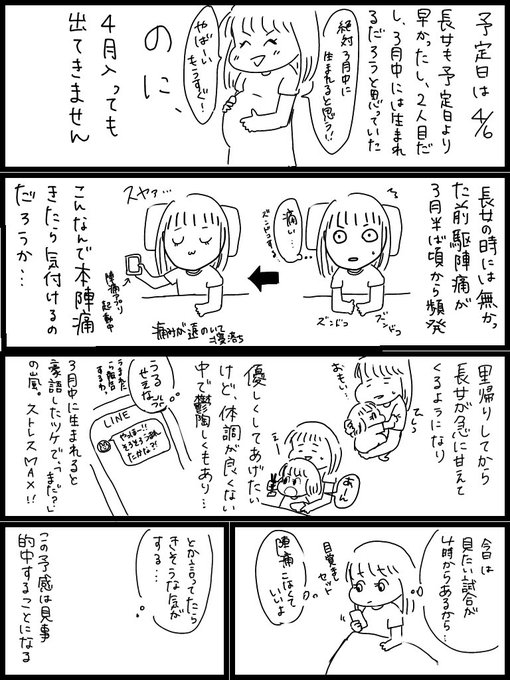 予定日は4/6
長女も予定日より
早かったし、2人目だ
し、3月中には生まれ
るだろうと思っていた
絶対3月中に
生まれると思う!!
やばーい
もうすぐ〜!
のに、
4月入っても
出てきません
長女の時には無かっ
た前駆陣痛が
3月半ば頃から頻発
痛い…
ズンドコする
ズンドコ
ズンドコ
スヤァ…
陣痛アプリ
起動中
痛みが退のいて
寝落ち
こんなんで本陣痛
きたら気付けるの
だろうか…
里帰りしてから
長女が急に甘えて
くるようになり
おもい…
てしっ
あーん
優しくしてあげたい
けど、体調が良くない
中で鬱陶しくもあり…
うるせえな
うまれたら報告するわ。
LINE
やっほー!!
そろそろうまれ
たかな?!
3月中に生まれると
豪語したツケで、「まだ?」
の嵐。ストレスMAX!!
今日は
見たい試合が
4時からあるから…
目覚ましセット
陣痛こなくて
いいよ
とか言ってたら
きそうな気が
する…
この予感は見事
的中することになる